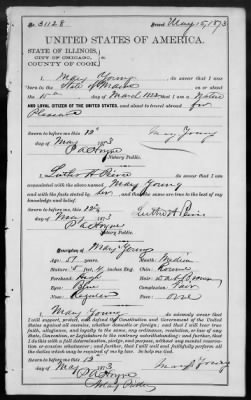 No. 31128. Issued May 15, 1873
UNITED STATES OF AMERICA.
STATE OF ILLINOIS,
CITY OF CHICAGO,
COUNTY OF COOK
I, Mary Young do swear that I was
born in the State of Maine on or about
the day of March 1822 that I am a Native
AND LOYAL CITIZEN OF THE UNITED STATES, and about to travel abroad for
Pleasure
Sworn to before me this 12th
day of May 1873 Mary Young
P A Hoyne
Notary Public.
I, Luther do swear that I am
acquainted with the above named, Mary Young
and with the facts stated by her and that the same are true to the best of my knowledge
and belief.
Sworn to before me this 12th
day of May 1873 Luther
P A Hoyne
Notary Public.
Description of Mary Young
Age, 51 years. Mouth, Medium
Stature, 5 feet, inches Eng. Chin,
Forehead, High Hair, Brown
Eyes, Blue Complexion, Fair
Nose, Regular Face,
I, Mary Young do solemnly swear that I
will support, protect, and defend the Constitution and Government of the United
States against all enemies, whether domestic or foreign; and that I will bear true
faith, allegiance, and loyalty to the same, any ordinance, resolution, or law of any
State, Convention, or Legislature to the contrary notwithstanding; and further, that I
do this with a full determination, pledge, and purpose, without any mental reservation
or evasion whatsoever; and further, that I will well and faithfully perform all
the duties which may be required of me by law. So help me God.
Sworn to before me this 12
day of May 1873 Mary Young
P A Hoyne
Notary Public